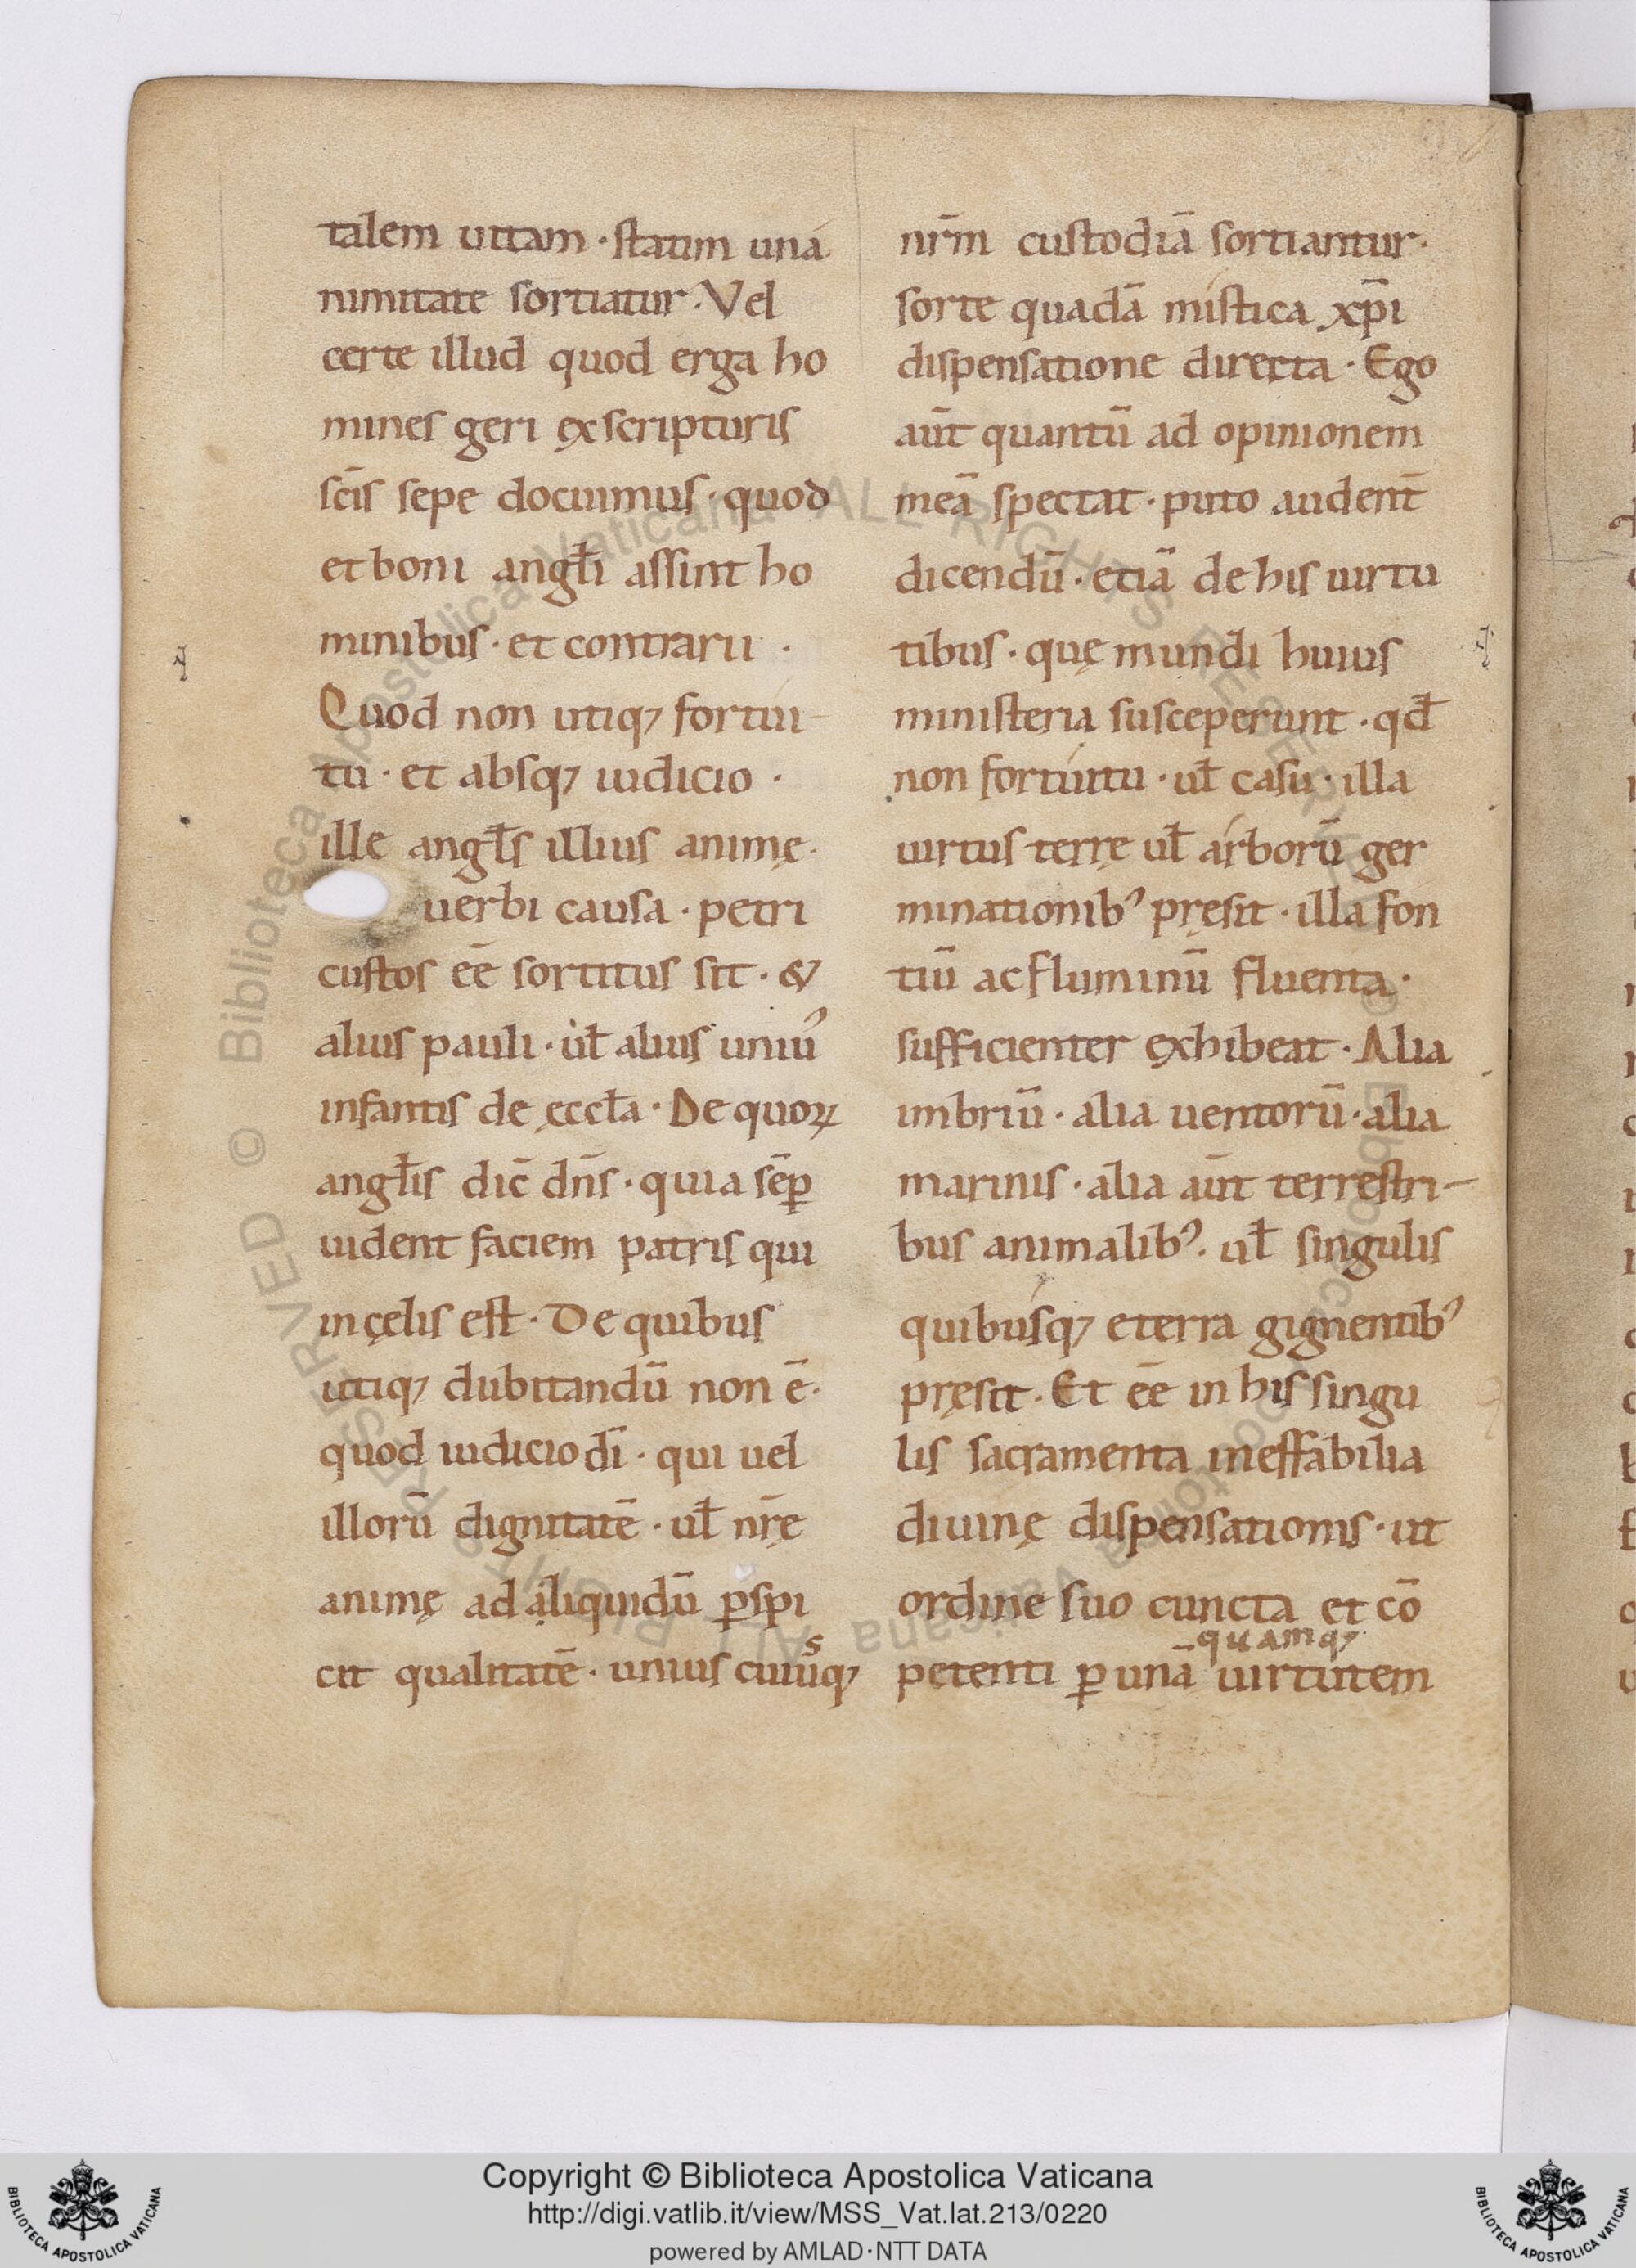 talem uitam · statim una
nimitate sortiatur · Vel
certe illud quod erga ho
mines geri ex scripturis
scīs sepe docuimus · quod
et boni angłi assint ho
minibus · et contrarii ·
Quod non utiq; fortui
tu · et absq; iudicio ·
ille angłs illius animę ·
uerbi causa · petri
custos eē sortitus sit · &
alius pauli · uł alius uniuꝰ
infantis de ęccła · De quoꝝ
angłis dic̄ dn̄s · quia sēꝑ
uident faciem patris qui
in cęlis est · De quibus
utiq; dubitandū non ē ·
quod iudicio dī · qui uel
illorū dignitatē · uł nr̄ę
animę ad aliquidū ꝑspi
cit qualitatē · unius cuiusq;
nr̄m custodiā sortiantur ·
sorte quadā mistica xp̄i
dispensatione directa · Ego
aūt quantū ad opinionem
meā spectat · puto audent̄
dicendū · etiā de his uirtu
tibus · quę mundi huius
ministeria susceperunt · qđ
non fortuitu · uł casu · illa
uirtus terrę uł arborū ger
minationibꝰ pręsit · illa fon
tiū ac fluminū fluenta ·
sufficienter exhibeat · Alia
imbriū · alia uentorū · alia
marinis · alia aūt terrestri-
bus animalibꝰ · uł singulis
quibusq; e terra gignentibꝰ
pręsit · Et eē in his singu
lis sacramenta ineffabilia
diuinę dispensationis · ut
ordine suo cuncta et cō
quamq;
petenti ꝑ unā uirtutem
Copyright © Biblioteca Apostolica Vaticana
http://digi.vatlib.it/view/MSS_Vat.lat.213/0220
powered by AMLAD·NTT DATA
BIBLIOTECA APOSTOLICA VATICANA
BIBLIOTECA APOSTOLICA VATICANA